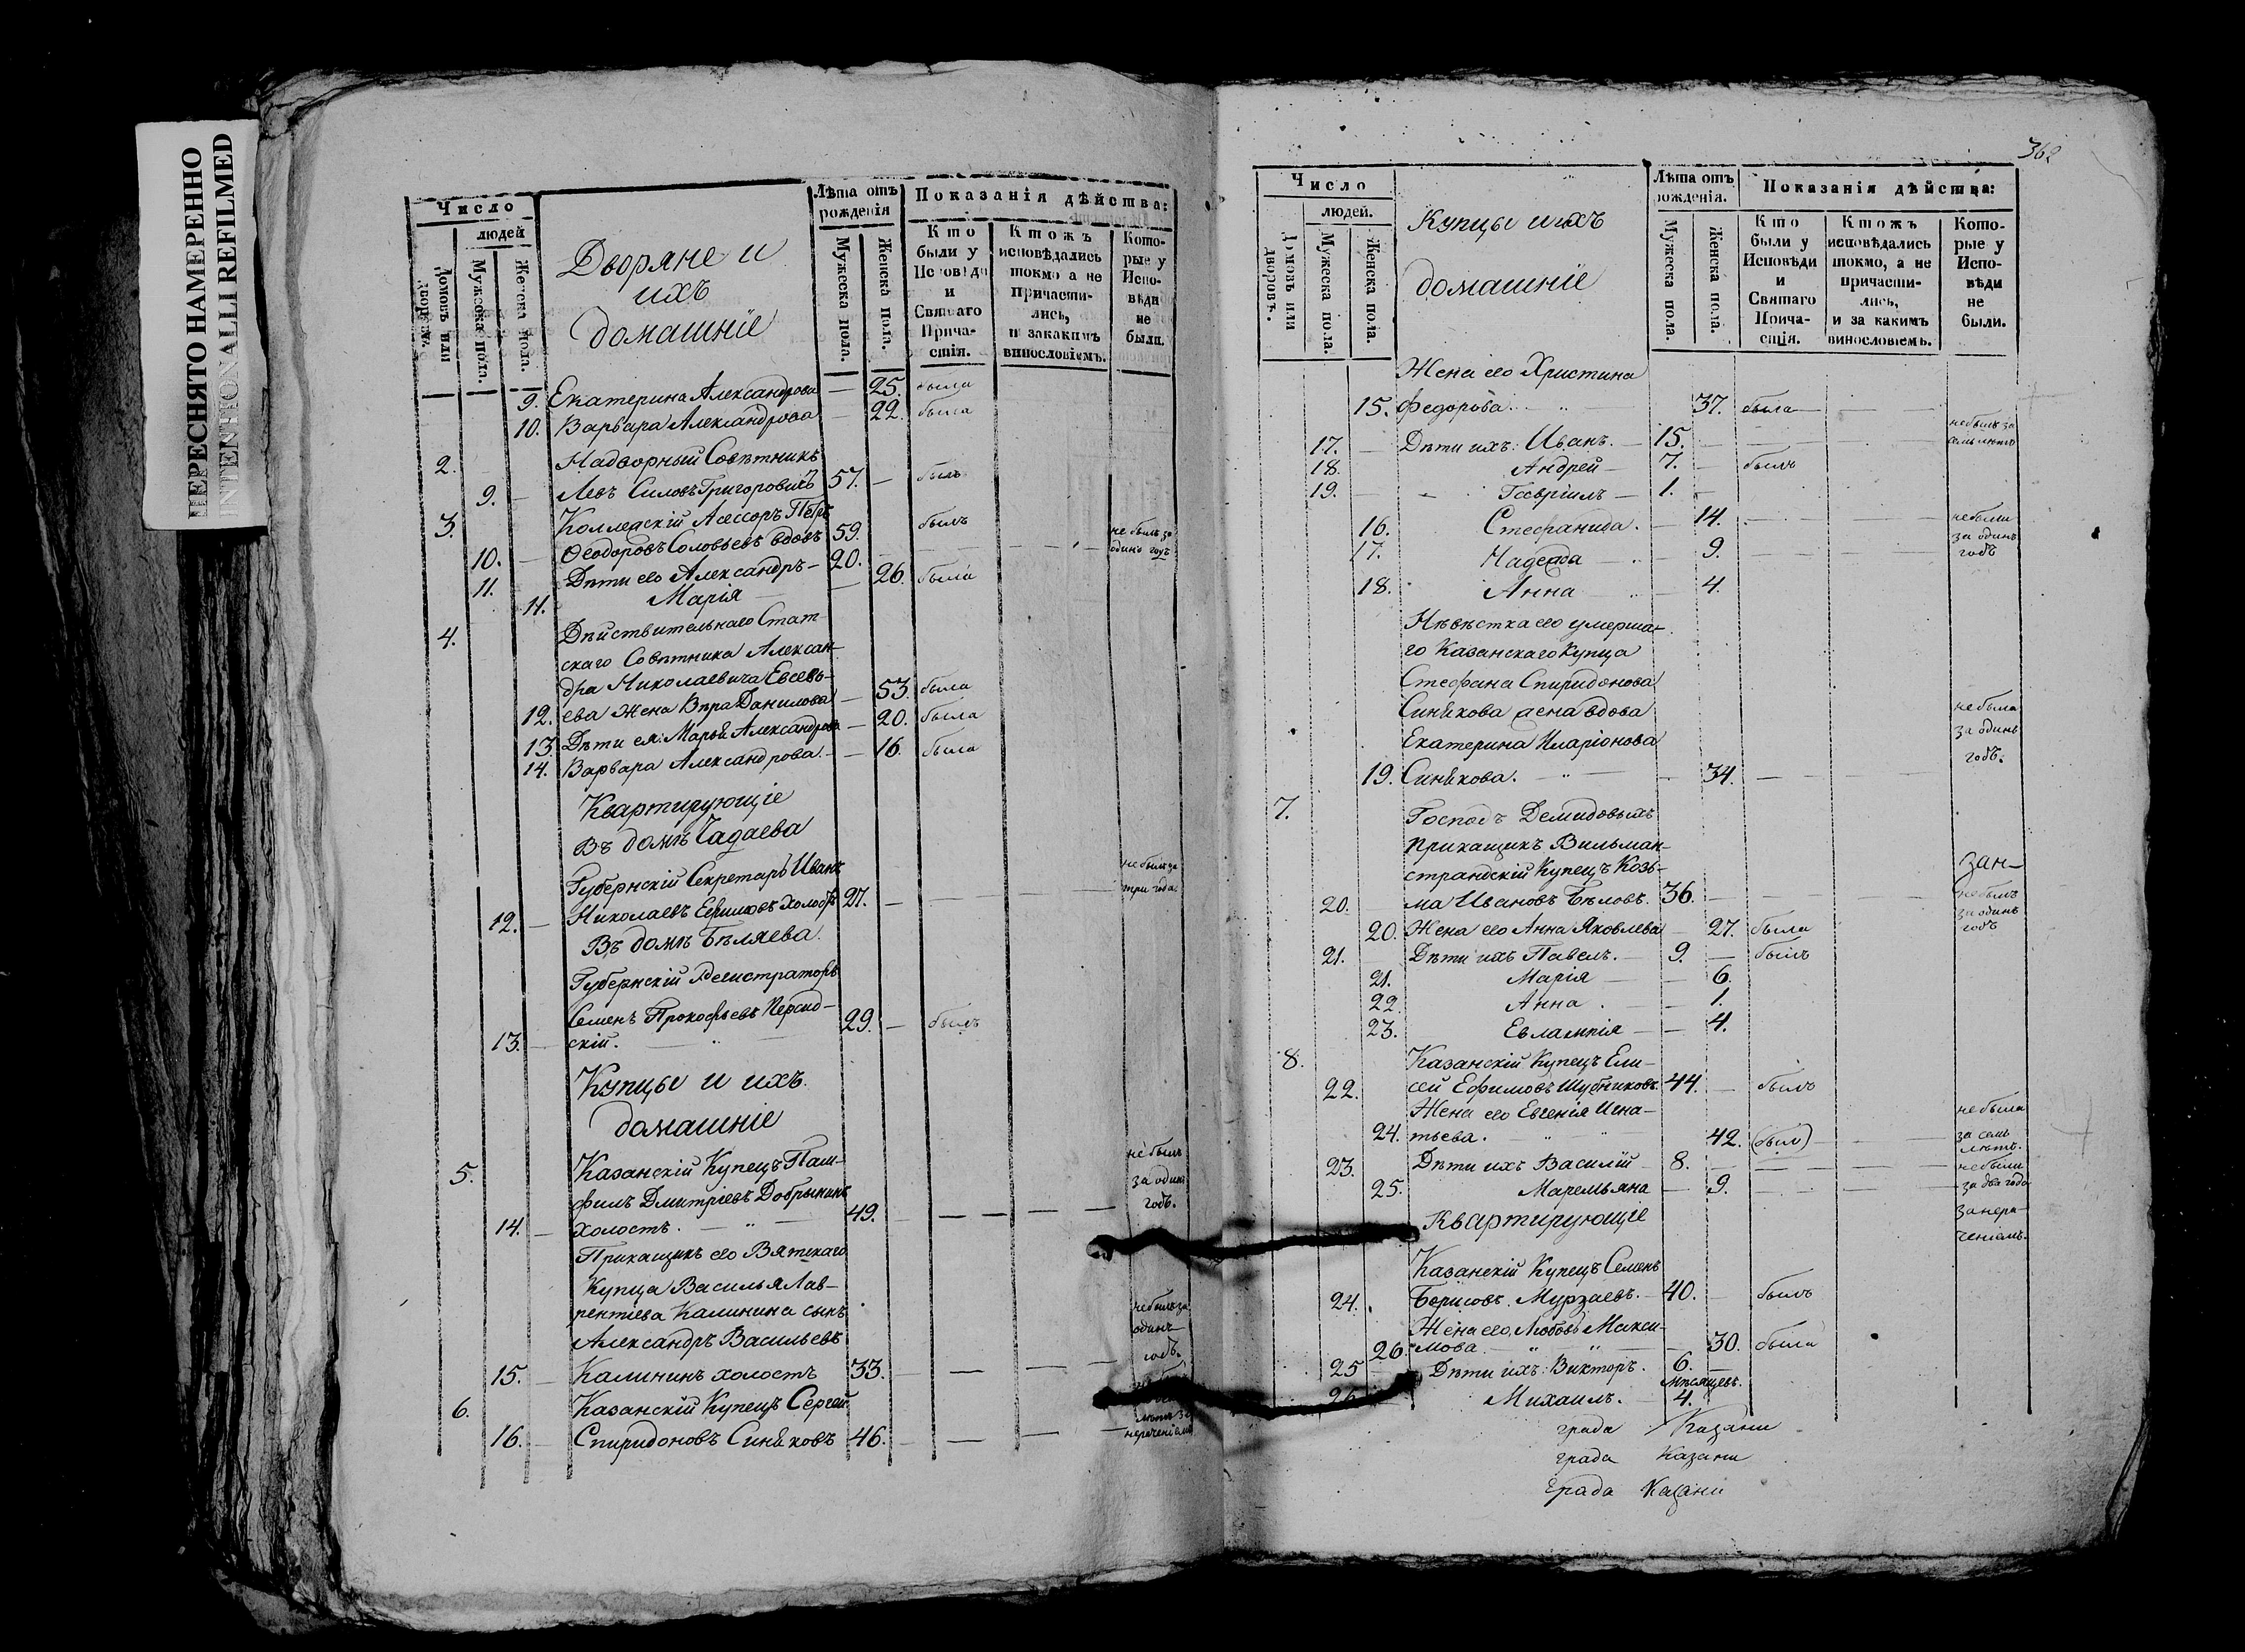 ПЕРЕСНЯТО НАМЕРЕННО
INTENTIONALLI REFILMED
Число
людей
Домовъ или дворовъ.
Мужеска пола.
Женска пола.
Дворяне и
ихъ
домашніе
Лѣта отъ
рожденія
Мужеска пола.
Женска пола.
Показанія дѣйства:
Кто
были у
Исповѣди
и
Святаго
Прича-
стія.
Ктожъ
исповѣдались
токмо а не
причасти-
лись,
и закакимъ
винословіемъ.
Кото-
рые у
Испо-
вѣди
не
были.
9. Екатерина Александрова — 25. была
10. Варвара Александрова — 22. была
2. Надворный Совѣтникъ
9. — Левъ Силовъ Григоровичъ 57. — былъ
3. Коллежскій Асессоръ Петръ
10. — Ѳеодоровъ Соловьевъ вдовъ 59. былъ
11. Дѣти его Александръ — 20. не былъ за одинъ годъ
11. Марія — 26. была
4. Дѣйствительнаго Стат-
скаго Совѣтника Алексан-
дра Николаевича Евсевь-
12. ева жена Вѣра Данилова — 53. была
13. Дѣти ея: Марья Александрова — 20. была
14. Варвара Александрова. — 16. была
Квартирующіе
Въ домѣ Чадаева
Губернскій Секретарь Иванъ
12. — Николаевъ Ефимовъ холостъ 27. — не былъ за три года
Въ домѣ Бѣляева.
Губернскій Регистраторъ
Семенъ Прокофьевъ Персид-
13. — скій. 29. — былъ
Купцы и ихъ
домашніе
5. Казанскій Купецъ Пам-
филъ Дмитріевъ Добрынинъ
14. — холостъ. 49. не былъ за одинъ годъ.
Прикащикъ его Вятскаго
Купца Василья Лав-
рентіева Калинина сынъ
Александръ Васильевъ
15. — Калининъ холостъ 33. — не былъ за одинъ годъ.
6. Казанскій Купецъ Сергей
16. — Спиридоновъ Синяковъ 46. — нераченіемъ
362
Число
людей.
Домовъ или дворовъ.
Мужеска пола.
Женска пола.
Купцы и ихъ
домашніе
Лѣта отъ
рожденія.
Мужеска пола.
Женска пола.
Показанія дѣйства:
Кто
были у
Исповѣди
и
Святаго
Прича-
стія.
Ктожъ
исповѣдались
токмо, а не
причасти-
лись,
и за какимъ
винословіемъ.
Кото-
рые у
Испо-
вѣди
не
были.
Жена его Христина
15. Федорова. 37. была
17. — Дѣти ихъ: Иванъ. — 15. не былъ за семь лѣтъ
18. Андрей — 7. — былъ
19. Гавріилъ — 1. —
16. Стефанида. — 14. не были
17. Надежда — 9. за одинъ годъ
18. Анна — 4.
Невѣстка его умерша-
го Казанскаго Купца
Стефана Спиридонова
Синякова жена вдова
Екатерина Иларіонова
19. Синякова. — 34. — не была за одинъ годъ.
7. Господъ Демидовыхъ
прикащикъ Вильман-
страндскій Купецъ Козь-
20. ма Ивановъ Бѣловъ. 36. — не былъ за одинъ годъ
20. Жена его Анна Яковлева — 27. была
21. — Дѣти ихъ Павелъ. — 9. — былъ
21. Марія — 6.
22. Анна. — 1.
23. Евлампія — 4.
8. Казанскій Купецъ Ели-
22. сей Ефимовъ Шубниковъ. 44. — былъ
Жена его Евгенія Игна-
24. тьева. 42. (былъ) не была за семь лѣтъ.
23. Дѣти ихъ Василій — 8. — не были
25. Маремьяна — 9. за два года
Квартирующіе за нера-
ченіемъ.
Казанскій Купецъ Семенъ
24. Борисовъ Мурзаевъ. — 40. — былъ
Жена его Любовь Макси-
26. мова. — 30. была
25 — Дѣти ихъ: Викторъ. 6. —
мѣсяцевъ.
26 Михаилъ. — 4.
града Казани
града Казани
Града Казани